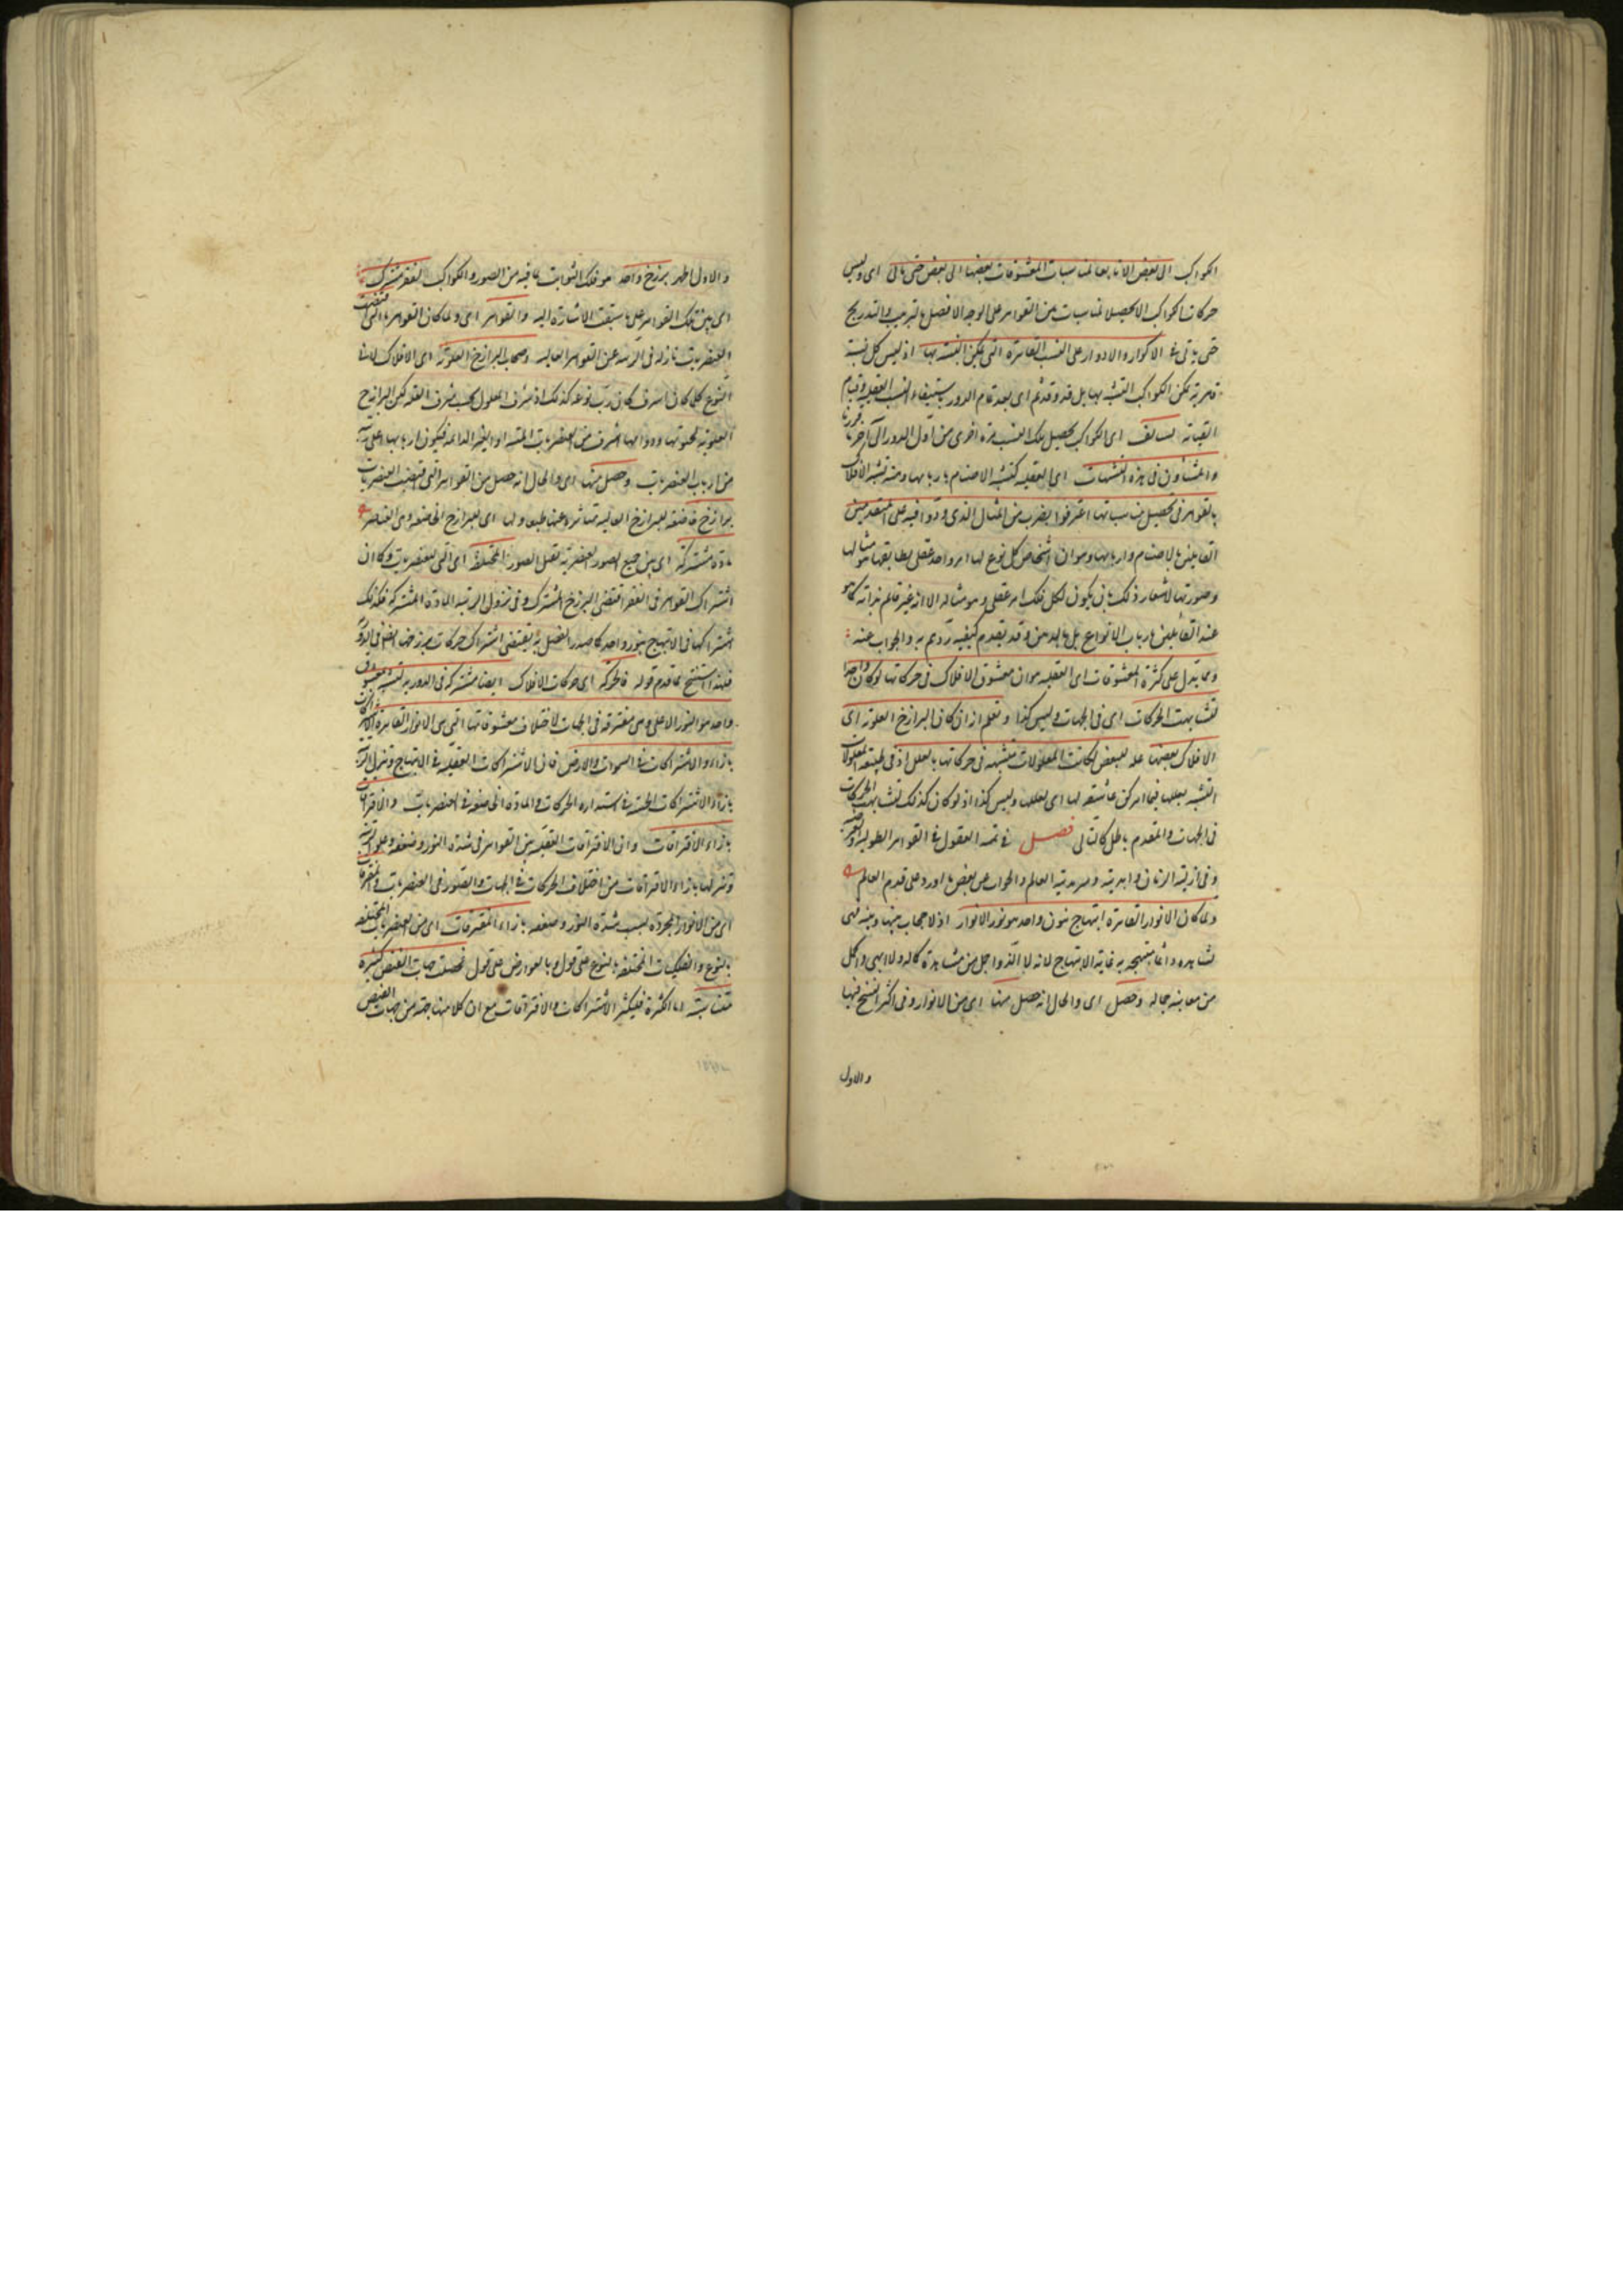 الكواكب الى بعض الا تابعا لمناسبات المعشوقات بعضها الى بعض حتى ياتى اى وليس
حركات الكواكب الا لتحصيل مناسبات بين القواهر على الوجه الافضل بالترتيب والتدريج
حتى ياتى فى الاكوار والادوار على النسب القاهرة التى يمكن التشبه بها اذ ليس كل نسبة
قاهرية يمكن الكواكب التشبه بها بل قد وقد ثم اى بعد تمام الدور يستيفاء النسب العقلية
يستانف اى الكواكب تحصيل تلك النسب مرة اخرى من اول الدور الى آخره
والمشاؤن فى هذه التشبهات اى العقلية كتشبه الاصنام باربابها ومنه تشبه الافلاك
بالقواهر فى تحصيل مناسباتها اعترفوا بضرب من المثال الذى ردوا فيه على المتقدمين
القايلين بالاصنام واربابها وهو ان اشخاص كل نوع لها امر واحد عقلى يطابقها هو مثالها
وصورتها لاشعار ذلك بان يكون لكل فلك امر عقلى وهو مثاله الا انه غير قائم بذاته كما هو
عند القائلين بارباب الانواع بل بالذهن وقد تقدم كيفية ردهم به والجواب عنه
ومما يدل على كثرة المعشوقات اى العقلية هو ان معشوق الافلاك فى حركاتها لو كان واحدا
تشابهت الحركات اى فى الجهات وليس كذا وتعلم ان كان البرازخ العلوية اى
الافلاك بعضها علة لبعض لكانت المعلولات متشبهة فى حركاتها بالعلل اذ فى طبيعة المعلولات
التشبه بعللها فيما امكن عاشقة لها اى لعللها وليس كذا اذ لو كان كذلك لتشابهت الحركات
فى الجهات والمقدم باطل كالتالى فصل فى تتمة العقول فى القواهر الطولية
وفى ازلية الزمان وابديته وسرمدية العالم والجواب عن بعض ما اورد على قدم العالم
ولما كان الانوار القاهرة ابتهاج بنور واحد هو نور الانوار اذ لا حجاب بينها وبينه فهى
تشاهده دائما مبتهجة به غاية الابتهاج لانه لا الذ واجل من مشاهدة كماله ولا ابهى واكمل
من معاينة جماله وحصل اى والحال انه حصل منها اى من الانوار وفى اكثر النسخ فيها
والاول
والاول اظهر برزخ واحد هو فلك الثوابت بما فيه من الصور والكواكب لفقر مشترك
اى بين تلك القواهر على ما سبقت الاشارة اليه والقواهر اى ولما كان القواهر التى اقتضت
العنصريات نازلة فى الرتبة عن القواهر العالية اصحاب البرازخ العلوية اى الافلاك لان
النوع كلما كان اشرف كان رب نوعه كذلك اذ شرف المعلول بحسب شرف العلة لكن البرازخ
العلوية لحيوتها ودوامها اشرف من العنصريات الميتة او الغير الدائمة فيكون اربابها اعلى رتبة
من ارباب العنصريات وحصل منها اى والحال انه حصل من القواهر التى اقتضت العنصريات
برازخ خاضعة للبرازخ العالية متاثرة عنها طبعا ولها اى للبرازخ الخاضعة وهى العناصر
مادة مشتركة اى بين جميع الصور العنصرية تقبل الصور المختلفة اى التى للعنصريات وكان
اشتراك القواهر فى الفقر اقتضى البرزخ المشترك وفى نزول الرتبة المادة المشتركة فكذلك
اشتراكها فى الابتهاج بنور واحد يقتضى اشتراك حركات برزخها
فلهذا استنتج مما تقدم قوله فالحركة اى حركات الافلاك ايضا مشتركة فى الدورية لتشبه بمعشوق
واحد هو النور الاعلى وهى مفترقة فى الجهات لاختلاف معشوقاتها التى هى الانوار القاهرة
بازاء الاشتراكات فى السموات والارض فان الاشتراكات العقلية فى الابتهاج ونزول الرتبة
بازاء الاشتراكات الحسية فى استدارة الحركات والمادة الخاضعة فى العنصريات والافتراقات
بازاء الافتراقات وان الافتراقات العقلية بين القواهر فى شدة النور وضعفه وعلو الرتبة
ونزولها بازاء الافتراقات من اختلاف الحركات فى الجهات والصور فى العنصريات والمفترقات
اى من الانوار المجردة بسبب شدة النور وضعفه بازاء المفترقات اى من العنصريات المختلفة
بالنوع والفلكيات المختلفة بالنوع على قول وبالعوارض على قول فحصلت جهات الفيض كثيرة
متناسبة اما الكثرة فلكثرة الاشتراكات والافتراقات مع ان كلا منها جهة من جهات الفيض